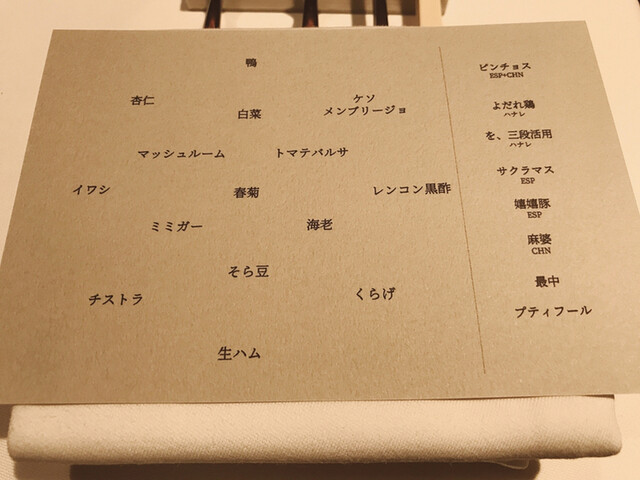 鴨
杏仁
白菜
ケソ
メンブリージョ
マッシュルーム
トマテバルサ
イワシ
春菊
レンコン黒酢
ミミガー
海老
そら豆
チストラ
くらげ
生ハム
ピンチョス
ESP+CHN
よだれ鶏
ハナレ
を、三段活用
ハナレ
サクラマス
ESP
嬉嬉豚
ESP
麻婆
CHN
最中
プティフール